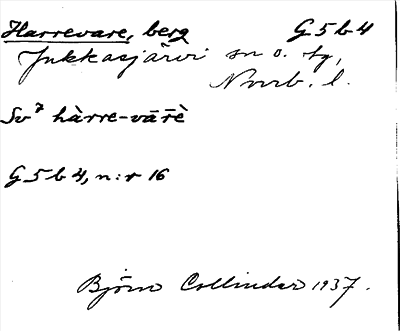 Harrevare, berg G5b4
Jukkasjärvi sn o. tg,
Norrb. l.
Sv⁷ hàrre-vārè
G5b4, n:r 16
Björn Collinder 1937.